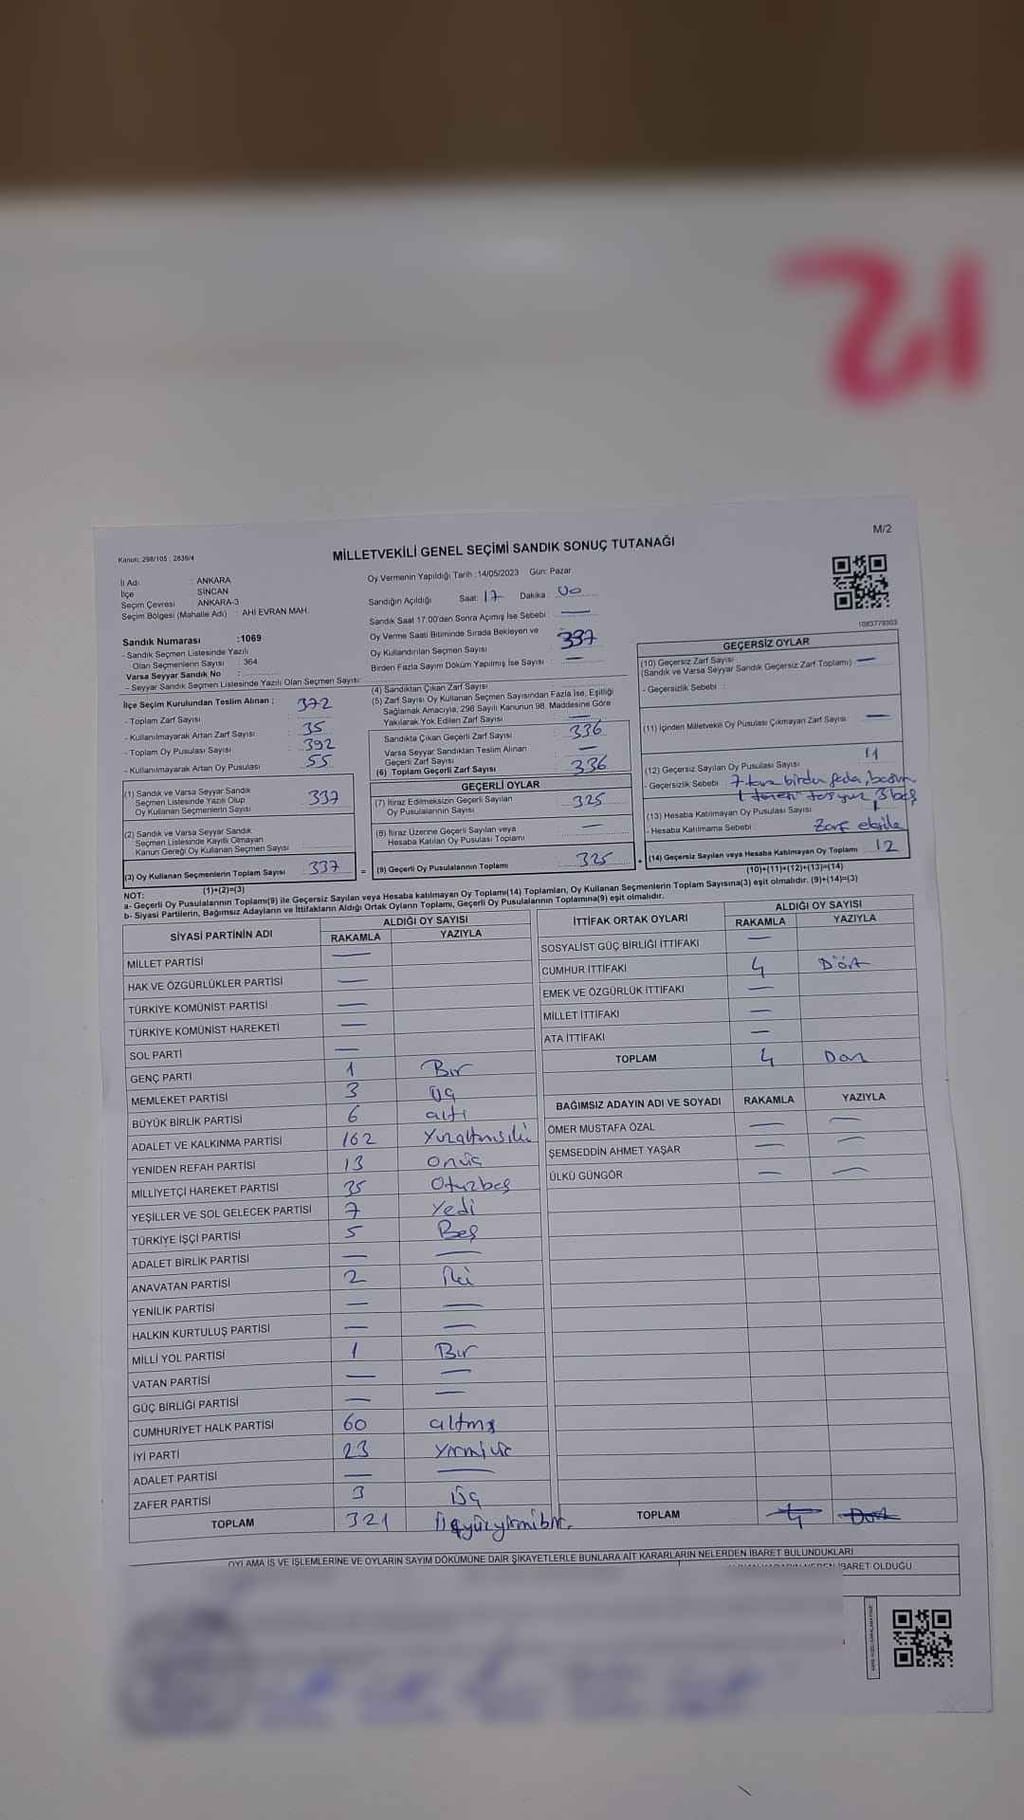 12
M/2
Kanun: 298/105 ; 2839/4
MİLLETVEKİLİ GENEL SEÇİMİ SANDIK SONUÇ TUTANAĞI
İl Adı : ANKARA
İlçe : SİNCAN
Seçim Çevresi : ANKARA-3
Seçim Bölgesi (Mahalle Adı) : AHİ EVRAN MAH.
Sandık Numarası :1069
- Sandık Seçmen Listesinde Yazılı
Olan Seçmenlerin Sayısı : 364
Varsa Seyyar Sandık No :
- Seyyar Sandık Seçmen Listesinde Yazılı Olan Seçmen Sayısı:
Oy Vermenin Yapıldığı Tarih :14/05/2023 Gün: Pazar
Sandığın Açıldığı Saat: 17 Dakika : 00
Sandık Saat 17.00'den Sonra Açılmış İse Sebebi : —
Oy Verme Saati Bitiminde Sırada Bekleyen ve
Oy Kullandırılan Seçmen Sayısı : 337
Birden Fazla Sayım Döküm Yapılmış İse Sayısı : —
1083779303
İlçe Seçim Kurulundan Teslim Alınan ;
- Toplam Zarf Sayısı : 372
- Kullanılmayarak Artan Zarf Sayısı : 35
- Toplam Oy Pusulası Sayısı : 392
- Kullanılmayarak Artan Oy Pusulası : 55
(1) Sandık ve Varsa Seyyar Sandık
Seçmen Listesinde Yazılı Olup
Oy Kullanan Seçmenlerin Sayısı 337
(2) Sandık ve Varsa Seyyar Sandık
Seçmen Listesinde Kayıtlı Olmayan
Kanun Gereği Oy Kullanan Seçmen Sayısı
(3) Oy Kullanan Seçmenlerin Toplam Sayısı 337
(1)+(2)=(3)
(4) Sandıktan Çıkan Zarf Sayısı
(5) Zarf Sayısı Oy Kullanan Seçmen Sayısından Fazla İse, Eşitliği
Sağlamak Amacıyla; 298 Sayılı Kanunun 98. Maddesine Göre
Yakılarak Yok Edilen Zarf Sayısı —
Sandıkta Çıkan Geçerli Zarf Sayısı 336
Varsa Seyyar Sandıktan Teslim Alınan
Geçerli Zarf Sayısı —
(6) Toplam Geçerli Zarf Sayısı 336
GEÇERLİ OYLAR
(7) İtiraz Edilmeksizin Geçerli Sayılan
Oy Pusulalarının Sayısı 325
(8) İtiraz Üzerine Geçerli Sayılan veya
Hesaba Katılan Oy Pusulası Toplamı —
(9) Geçerli Oy Pusulalarının Toplamı 325
GEÇERSİZ OYLAR
(10) Geçersiz Zarf Sayısı
(Sandık ve Varsa Seyyar Sandık Geçersiz Zarf Toplamı) —
- Geçersizlik Sebebi :
(11) İçinden Milletvekili Oy Pusulası Çıkmayan Zarf Sayısı —
(12) Geçersiz Sayılan Oy Pusulası Sayısı 11
- Geçersizlik Sebebi 7 tane birden fazla
3 boş
(13) Hesaba Katılmayan Oy Pusulası Sayısı
- Hesaba Katılmama Sebebi : Zarf
(14) Geçersiz Sayılan veya Hesaba Katılmayan Oy Toplamı 12
(10)+(11)+(12)+(13)=(14)
NOT:
a- Geçerli Oy Pusulalarının Toplamı(9) ile Geçersiz Sayılan veya Hesaba katılmayan Oy Toplamı(14) Toplamları, Oy Kullanan Seçmenlerin Toplam Sayısına(3) eşit olmalıdır. (9)+(14)=(3)
b- Siyasi Partilerin, Bağımsız Adayların ve İttifakların Aldığı Ortak Oyların Toplamı, Geçerli Oy Pusulalarının Toplamına(9) eşit olmalıdır.
SİYASİ PARTİNİN ADI ALDIĞI OY SAYISI
RAKAMLA YAZIYLA
MİLLET PARTİSİ —
HAK VE ÖZGÜRLÜKLER PARTİSİ —
TÜRKİYE KOMÜNİST PARTİSİ —
TÜRKİYE KOMÜNİST HAREKETİ —
SOL PARTİ —
GENÇ PARTİ 1 Bir
MEMLEKET PARTİSİ 3 üç
BÜYÜK BİRLİK PARTİSİ 6 altı
ADALET VE KALKINMA PARTİSİ 162 Yüzaltmışiki
YENİDEN REFAH PARTİSİ 13 onüç
MİLLİYETÇİ HAREKET PARTİSİ 35 Otuzbeş
YEŞİLLER VE SOL GELECEK PARTİSİ 7 Yedi
TÜRKİYE İŞÇİ PARTİSİ 5 Beş
ADALET BİRLİK PARTİSİ — —
ANAVATAN PARTİSİ 2 İki
YENİLİK PARTİSİ — —
HALKIN KURTULUŞ PARTİSİ — —
MİLLİ YOL PARTİSİ 1 Bir
VATAN PARTİSİ — —
GÜÇ BİRLİĞİ PARTİSİ — —
CUMHURİYET HALK PARTİSİ 60 altmış
İYİ PARTİ 23 Yirmiüç
ADALET PARTİSİ — —
ZAFER PARTİSİ 3 üç
TOPLAM 321 Üçyüzyirmibir.
İTTİFAK ORTAK OYLARI ALDIĞI OY SAYISI
RAKAMLA YAZIYLA
SOSYALİST GÜÇ BİRLİĞİ İTTİFAKI —
CUMHUR İTTİFAKI 4 Dört
EMEK VE ÖZGÜRLÜK İTTİFAKI —
MİLLET İTTİFAKI —
ATA İTTİFAKI —
TOPLAM 4 Dört
BAĞIMSIZ ADAYIN ADI VE SOYADI RAKAMLA YAZIYLA
ÖMER MUSTAFA ÖZAL — —
ŞEMSEDDİN AHMET YAŞAR — —
ÜLKÜ GÜNGÖR — —
TOPLAM 4 Dört
OYLAMA İŞ VE İŞLEMLERİNE VE OYLARIN SAYIM DÖKÜMÜNE DAİR ŞİKAYETLERLE BUNLARA AİT KARARLARIN NELERDEN İBARET BULUNDUKLARI
İBARET OLDUĞU